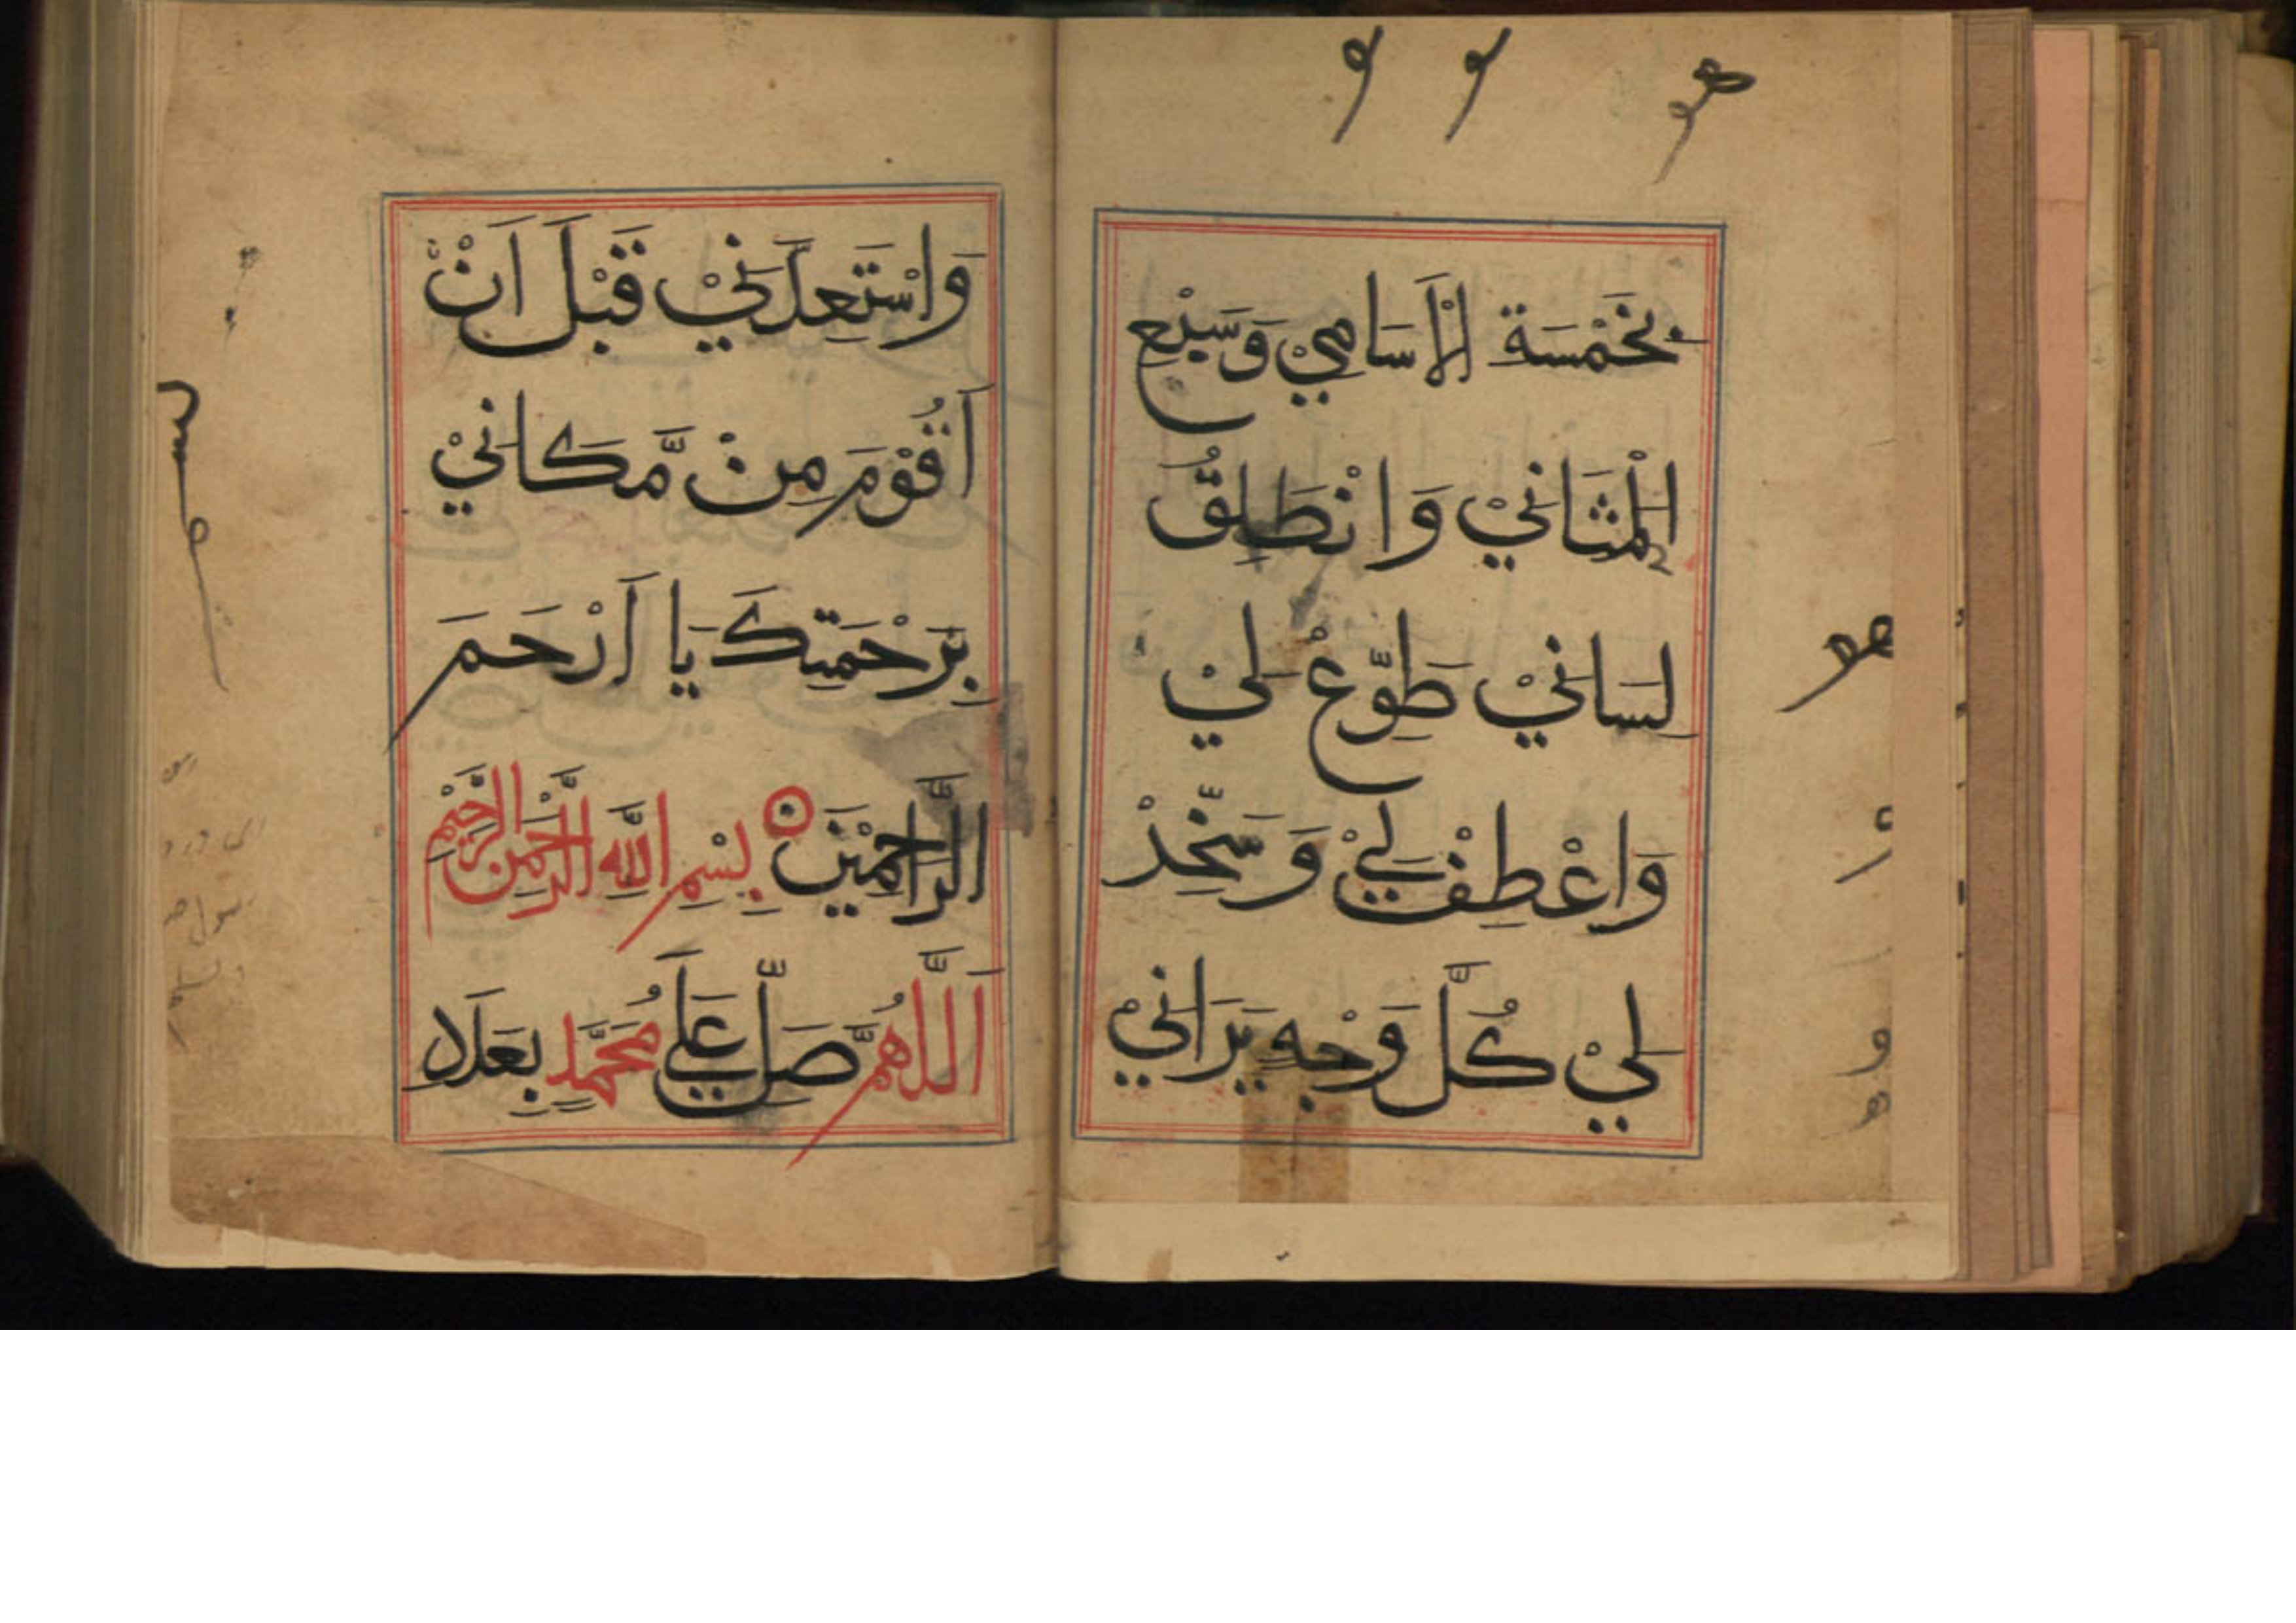 بِخَمْسَةِ الْاَسَامِيْ وَسَبْعِ
الْمَثَانِيْ وَانْطَلِقُ
لِسَانِيْ طَوِّعْ لِيْ
وَاعْطِفْ لِيْ وَسَخِّدْ
لِيْ كُلَّ وَجْهٍ يَرَانِيْ
وَاسْتَعِدَّنِيْ قَبْلَ اَنْ
اَقُوْمَ مِنْ مَّكَانِيْ
بِرَحْمَتِكَ يَا اَرْحَمَ
الرَّاحِمِيْنَ بِسْمِ اللَّهِ الرَّحْمَنِ الرَّحِيْمِ
اَللَّهُمَّ صَلِّ عَلَى مُحَمَّدٍ بِعَدَدِ